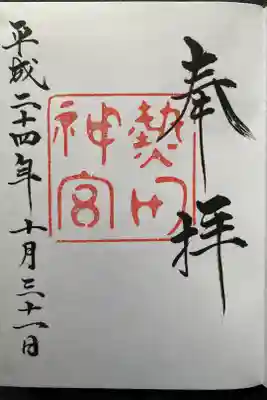 奉拝
熱田
神宮
平成二十四年十月三十一日